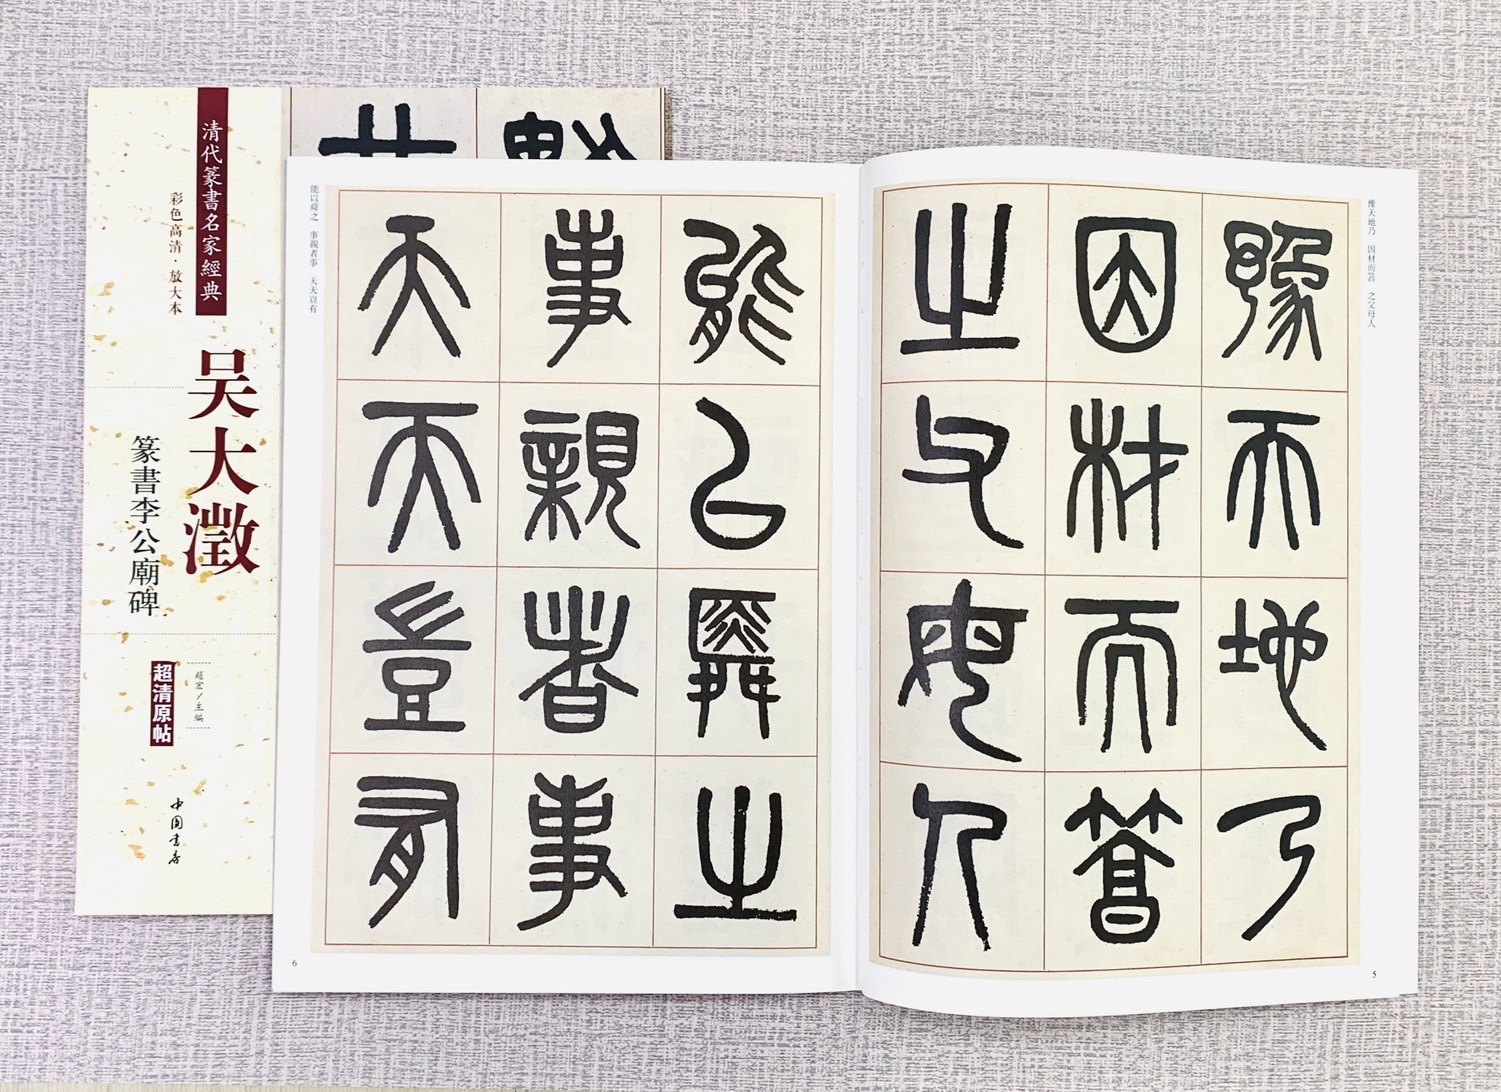 清代篆書名家經典
彩色高清·放大本
吴大澂
篆書李公廟碑
趙宏/主編
超清原帖
中国书店
豫天地乃 因材而笞 之父母人
豫而地乃
因材而笞
之父母人
5
能以舜之 事親者事 天天豈有
能以舜之
事親者事
天天豈有
6